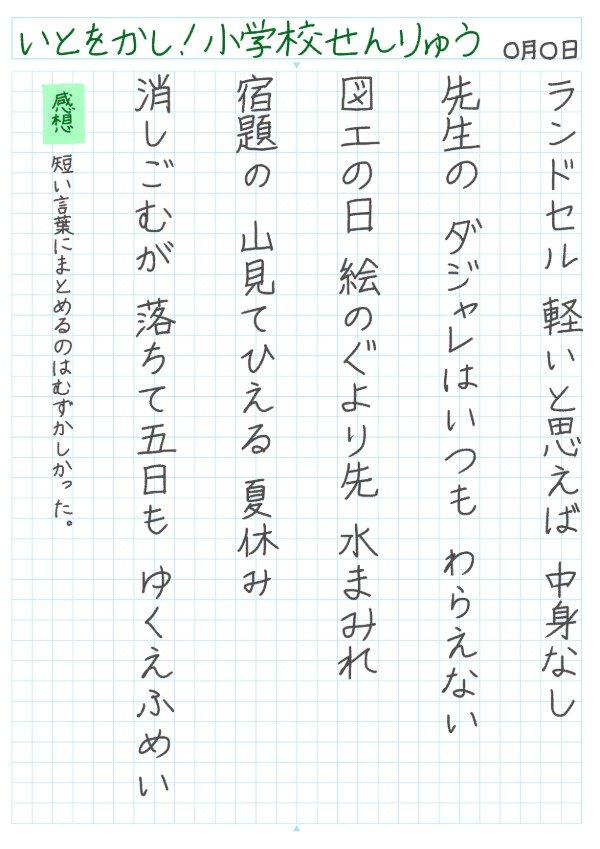 いとをかし！小学校せんりゅう
〇月〇日
ランドセル 軽いと思えば 中身なし
先生の ダジャレはいつも わらえない
図工の日 絵のぐより先 水まみれ
宿題の 山見てひえる 夏休み
消しごむが 落ちて五日も ゆくえふめい
感想 短い言葉にまとめるのはむずかしかった。